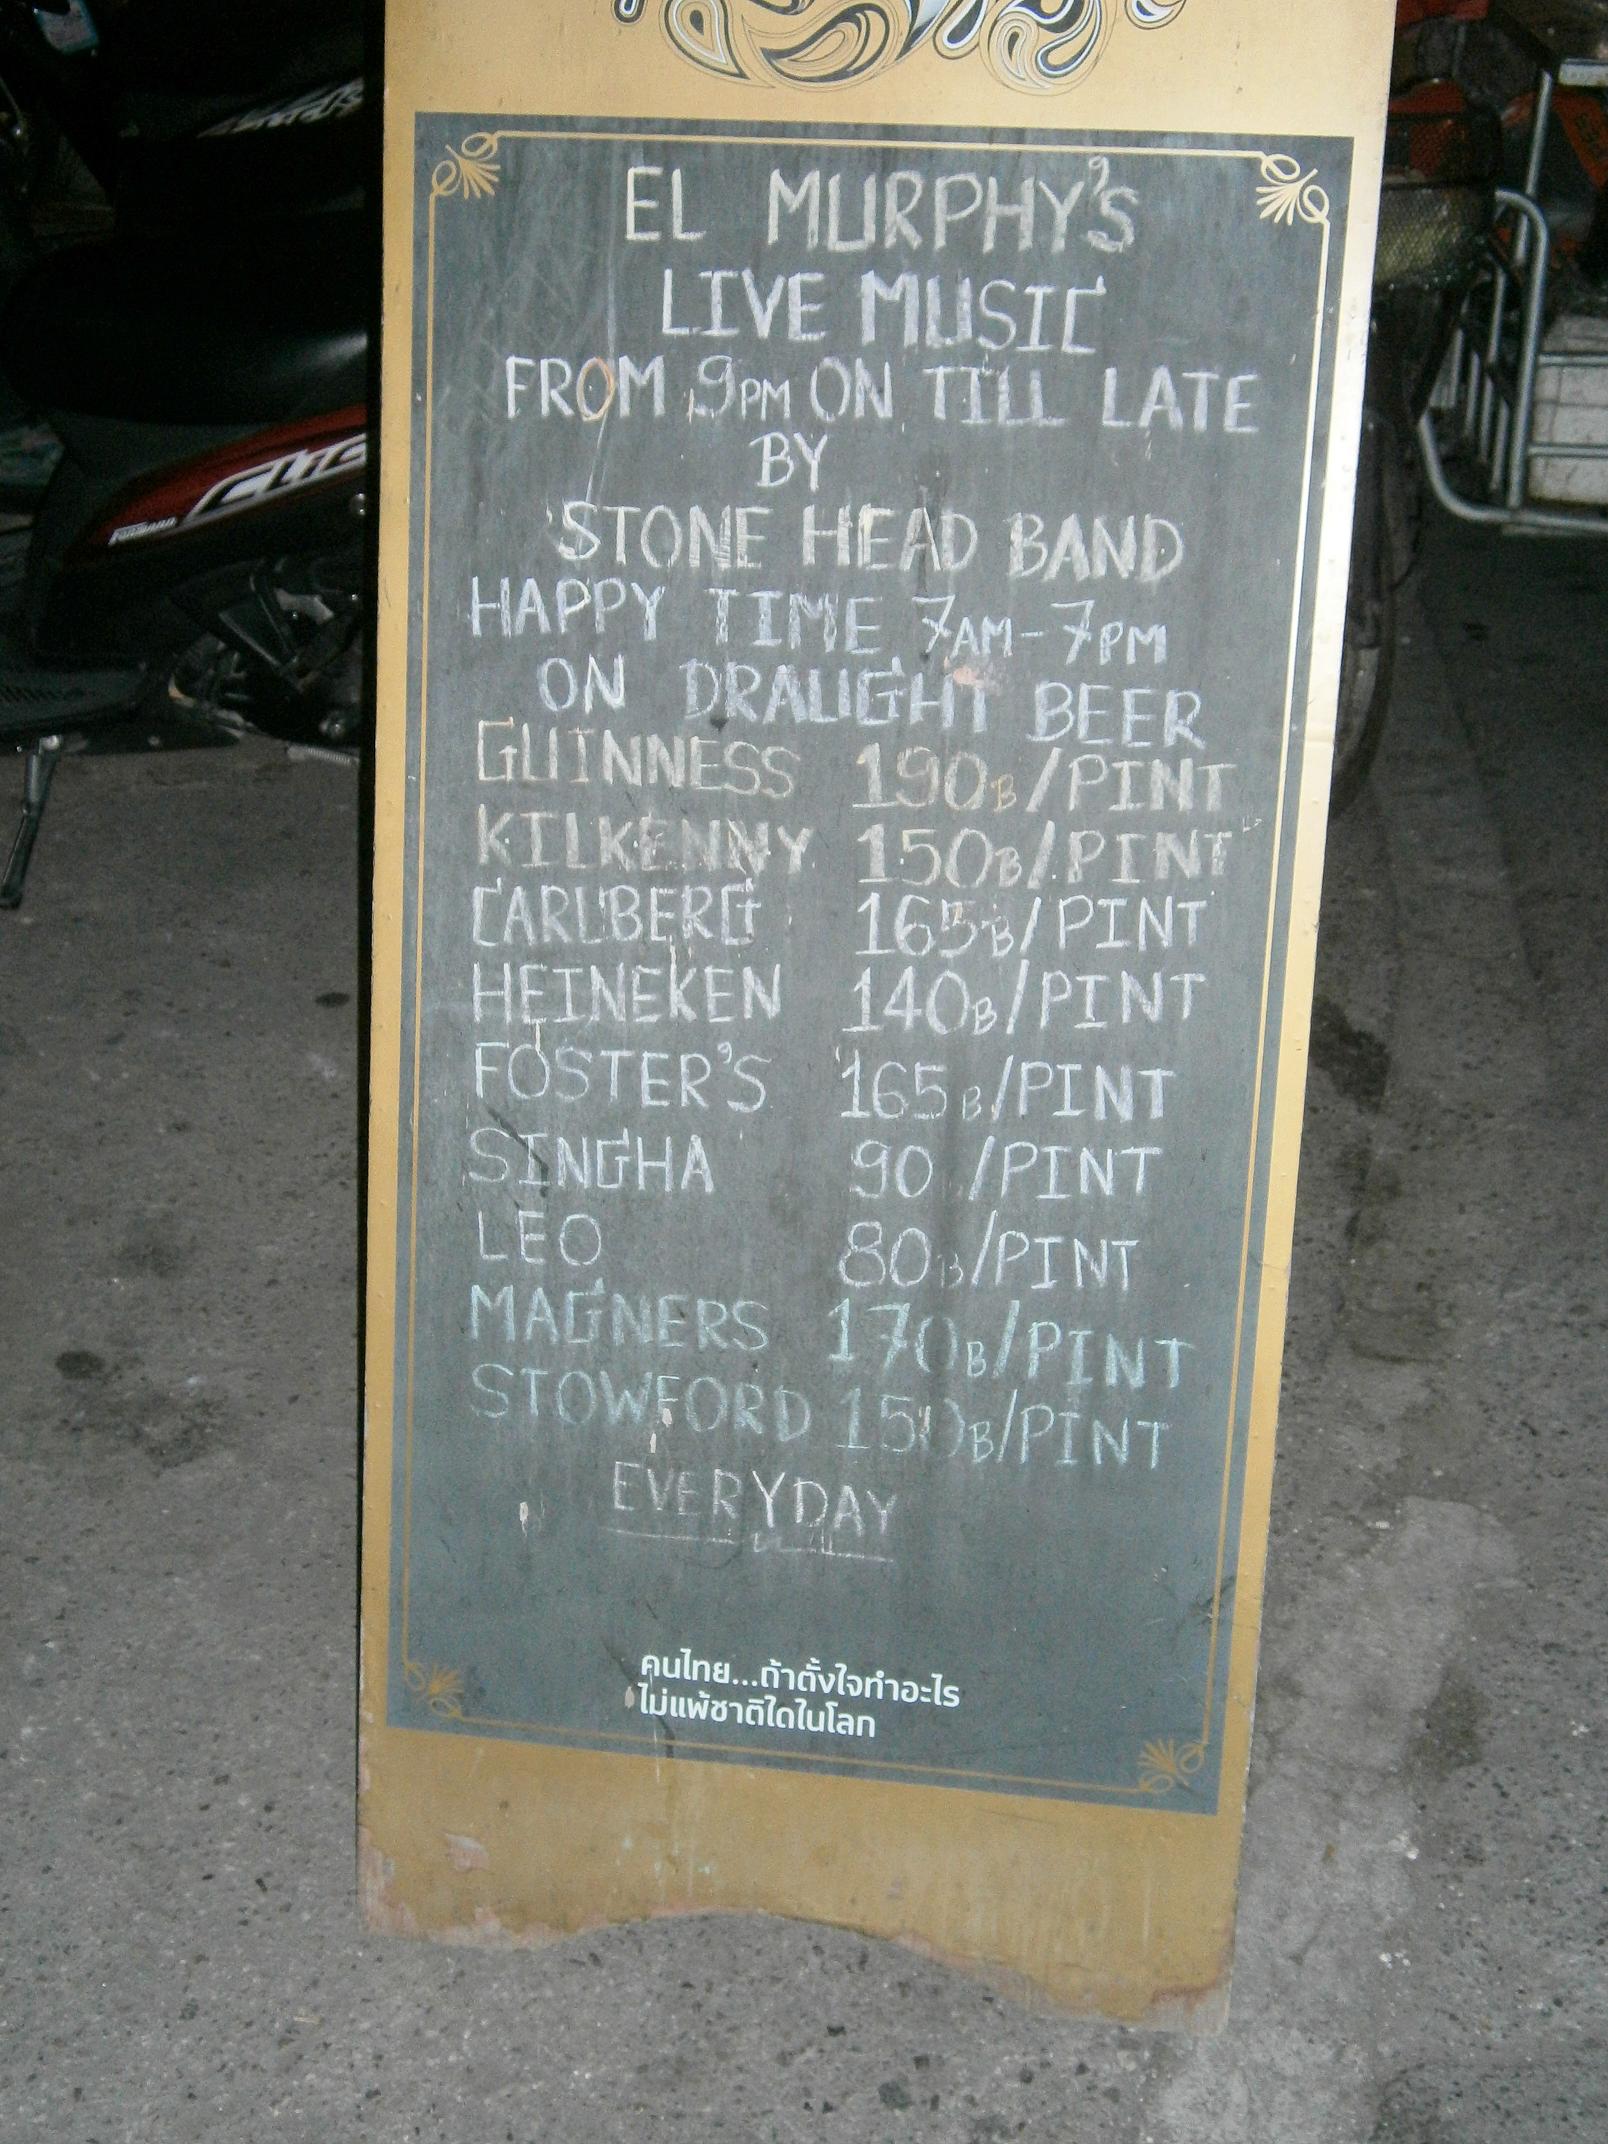 EL MURPHY'S
LIVE MUSIC
FROM 9PM ON TILL LATE
BY
STONE HEAD BAND
HAPPY TIME 7AM-7PM
ON DRAUGHT BEER
GUINNESS 190B/PINT
KILKENNY 150B/PINT
CARLBERG 165B/PINT
HEINEKEN 140B/PINT
FOSTER'S 165B/PINT
SINGHA 90 /PINT
LEO 80B/PINT
MAGNERS 170B/PINT
STOWFORD 150B/PINT
EVERYDAY
คนไทย...ถ้าตั้งใจทำอะไร
ไม่แพ้ชาติใดในโลก